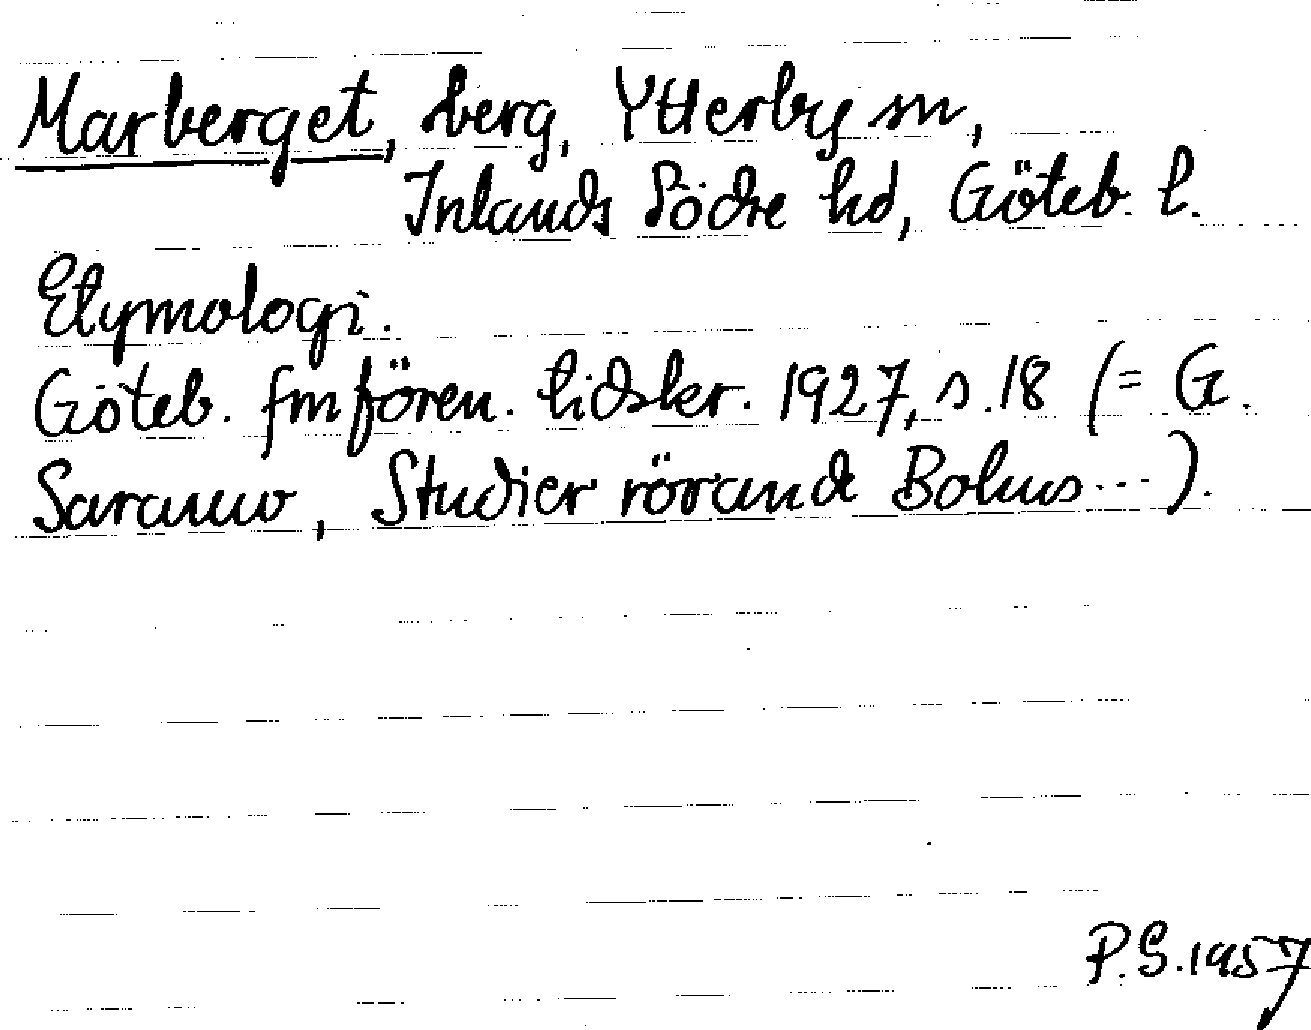 Marberget, berg, Ytterby sn,
Inlands Södre hd, Göteb. l.
Etymologi.
Göteb. fmfören. tidskr. 1927, s. 18 (= G.
Sarauw, Studier rörande Bohus...).
P.S. 1957